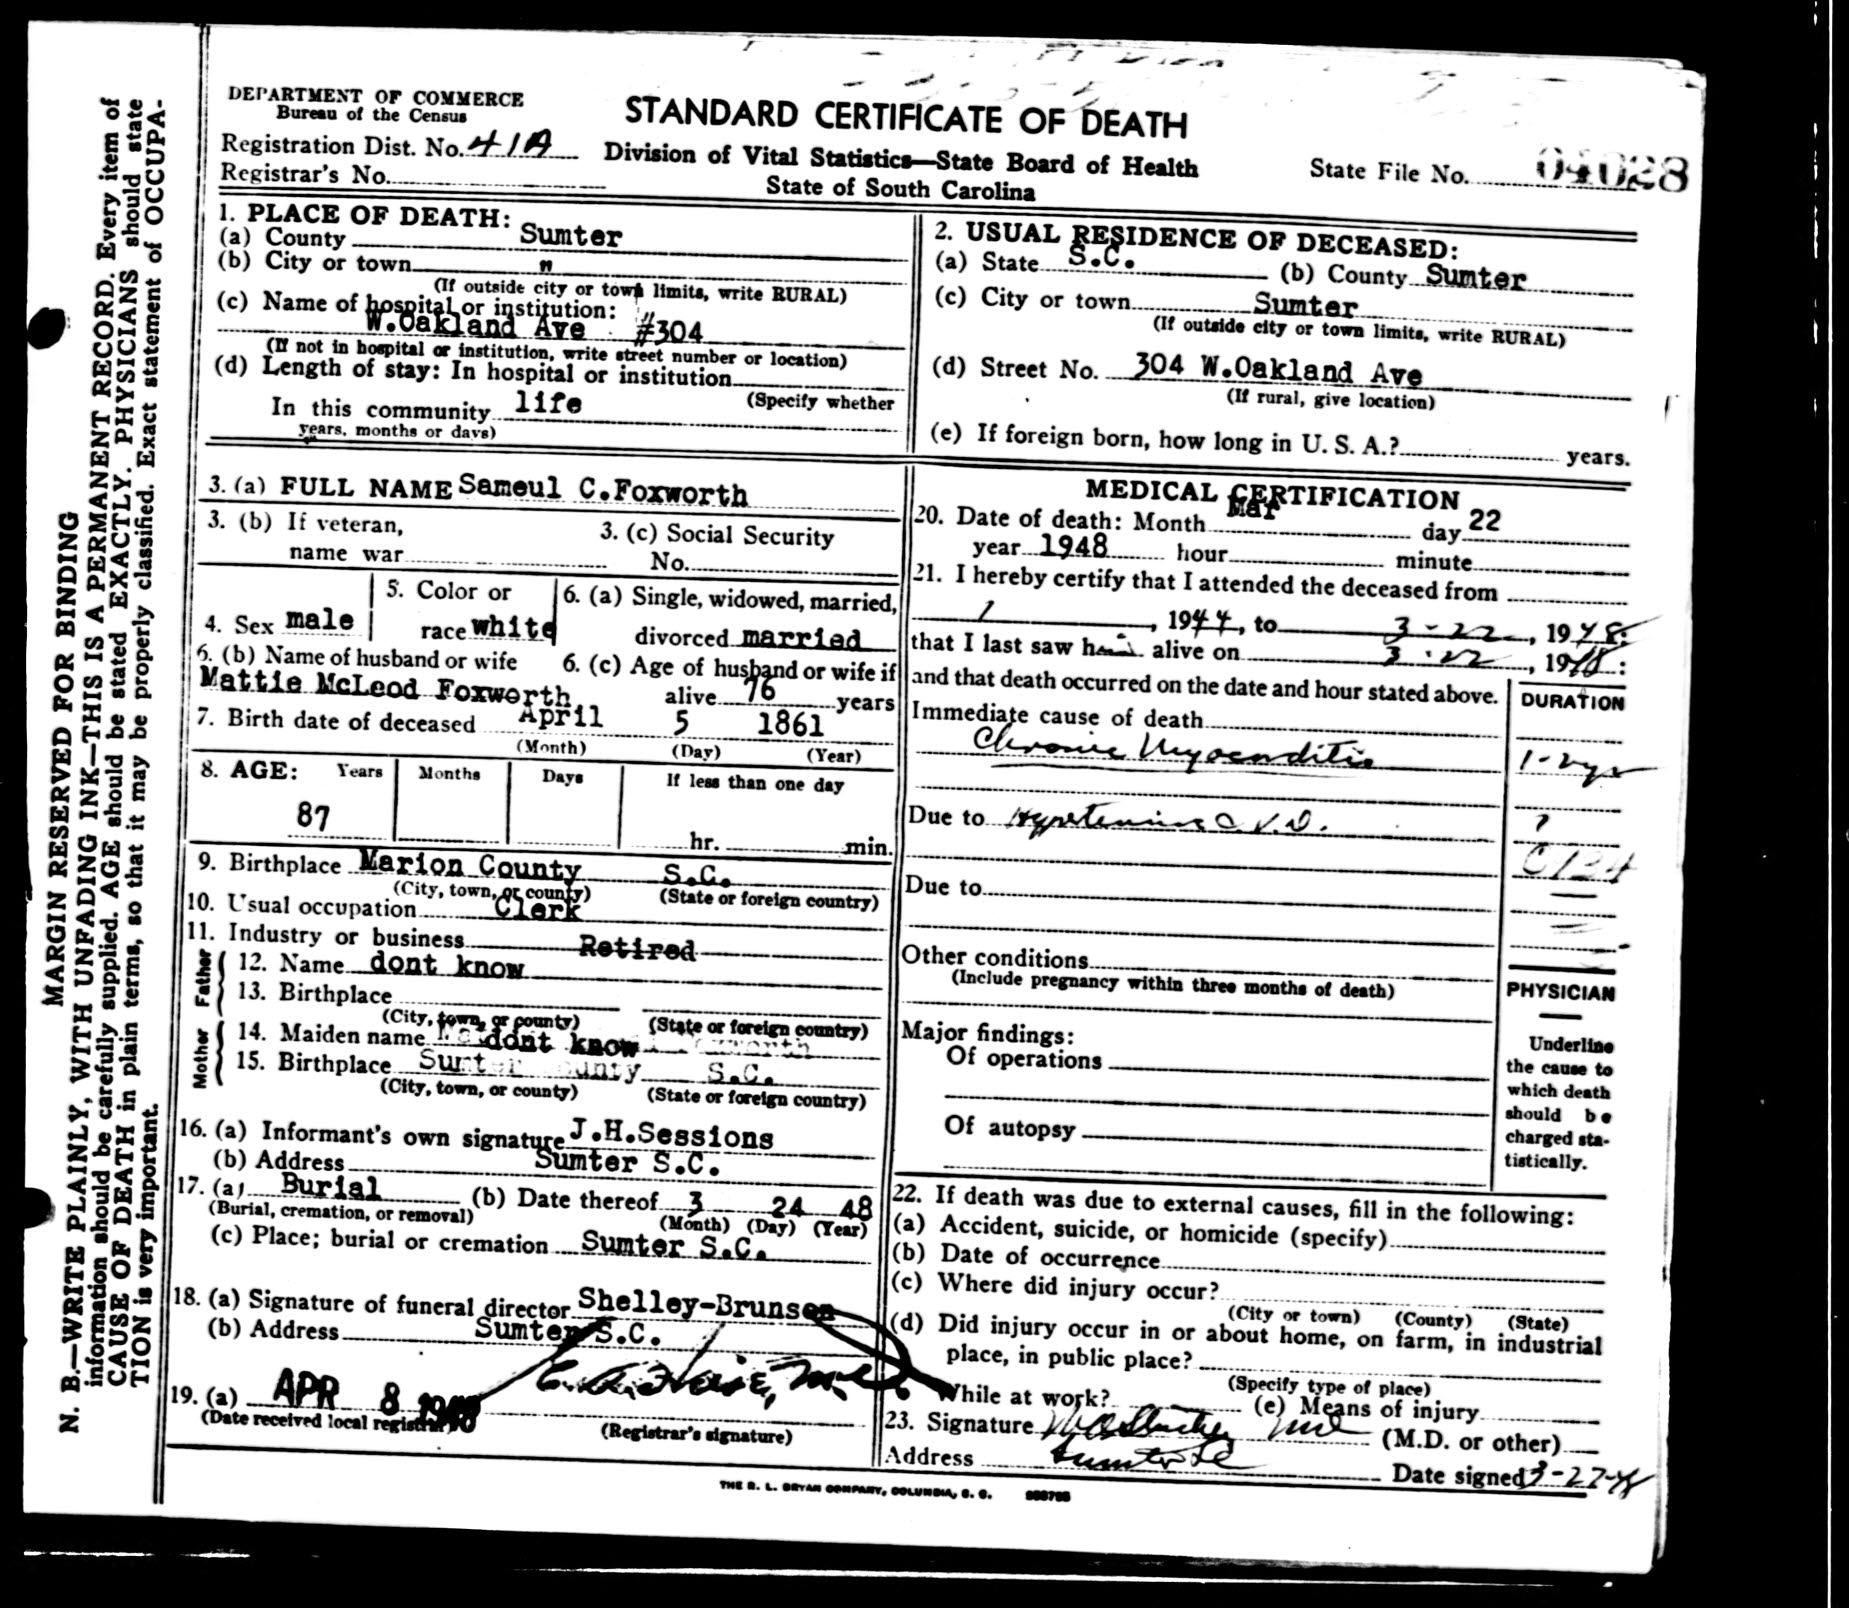 DEPARTMENT OF COMMERCE
Bureau of the Census
Registration Dist. No. 41A
Registrar's No.
STANDARD CERTIFICATE OF DEATH
Division of Vital Statistics—State Board of Health
State of South Carolina
State File No. 04028
1. PLACE OF DEATH:
(a) County Sumter
(b) City or town "
(If outside city or town limits, write RURAL)
(c) Name of hospital or institution:
W.Oakland Ave #304
(If not in hospital or institution, write street number or location)
(d) Length of stay: In hospital or institution
(Specify whether
In this community life
years, months or days)
2. USUAL RESIDENCE OF DECEASED:
(a) State S.C. (b) County Sumter
(c) City or town Sumter
(If outside city or town limits, write RURAL)
(d) Street No. 304 W.Oakland Ave
(If rural, give location)
(e) If foreign born, how long in U. S. A.? years.
3. (a) FULL NAME Sameul C.Foxworth
3. (b) If veteran,
name war
3. (c) Social Security
No.
4. Sex male
5. Color or
race white
6. (a) Single, widowed, married,
divorced married
6. (b) Name of husband or wife
Mattie McLeod Foxworth
6. (c) Age of husband or wife if
alive 76 years
7. Birth date of deceased April 5 1861
(Month) (Day) (Year)
8. AGE: Years Months Days If less than one day
87
hr. min.
9. Birthplace Marion County S.C.
(City, town, or county) (State or foreign country)
10. Usual occupation Clerk
11. Industry or business Retired
Father
12. Name dont know
13. Birthplace
(City, town, or county) (State or foreign country)
Mother
14. Maiden name dont know
15. Birthplace Sumter County S.C.
(City, town, or county) (State or foreign country)
16. (a) Informant's own signature J.H.Sessions
(b) Address Sumter S.C.
17. (a) Burial (b) Date thereof 3 24 48
(Burial, cremation, or removal) (Month) (Day) (Year)
(c) Place; burial or cremation Sumter S.C.
18. (a) Signature of funeral director Shelley-Brunson
(b) Address Sumter S.C.
19. (a) APR 8 1948
(Date received local registrar) (Registrar's signature)
MEDICAL CERTIFICATION
20. Date of death: Month Mar day 22
year 1948 hour minute
21. I hereby certify that I attended the deceased from
1, 1944, to 3-22, 1948;
that I last saw him alive on 3-22, 1948;
and that death occurred on the date and hour stated above.
DURATION
Immediate cause of death
Chronic Myocarditis 1-2 yrs
Due to Hypertensive C.V.D. ?
Due to
Other conditions
(Include pregnancy within three months of death)
Major findings:
Of operations
Of autopsy
PHYSICIAN
Underline
the cause to
which death
should be
charged sta-
tistically.
22. If death was due to external causes, fill in the following:
(a) Accident, suicide, or homicide (specify)
(b) Date of occurrence
(c) Where did injury occur?
(City or town) (County) (State)
(d) Did injury occur in or about home, on farm, in industrial
place, in public place?
(Specify type of place)
While at work? (e) Means of injury
23. Signature (M.D. or other)
Address Sumter SC Date signed 3-27-48
THE R. L. BRYAN COMPANY, COLUMBIA, S. C.
MARGIN RESERVED FOR BINDING
N. B.—WRITE PLAINLY, WITH UNFADING INK—THIS IS A PERMANENT RECORD. Every item of
information should be carefully supplied. AGE should be stated EXACTLY. PHYSICIANS should state
CAUSE OF DEATH in plain terms, so that it may be properly classified. Exact statement of OCCUPA-
TION is very important.